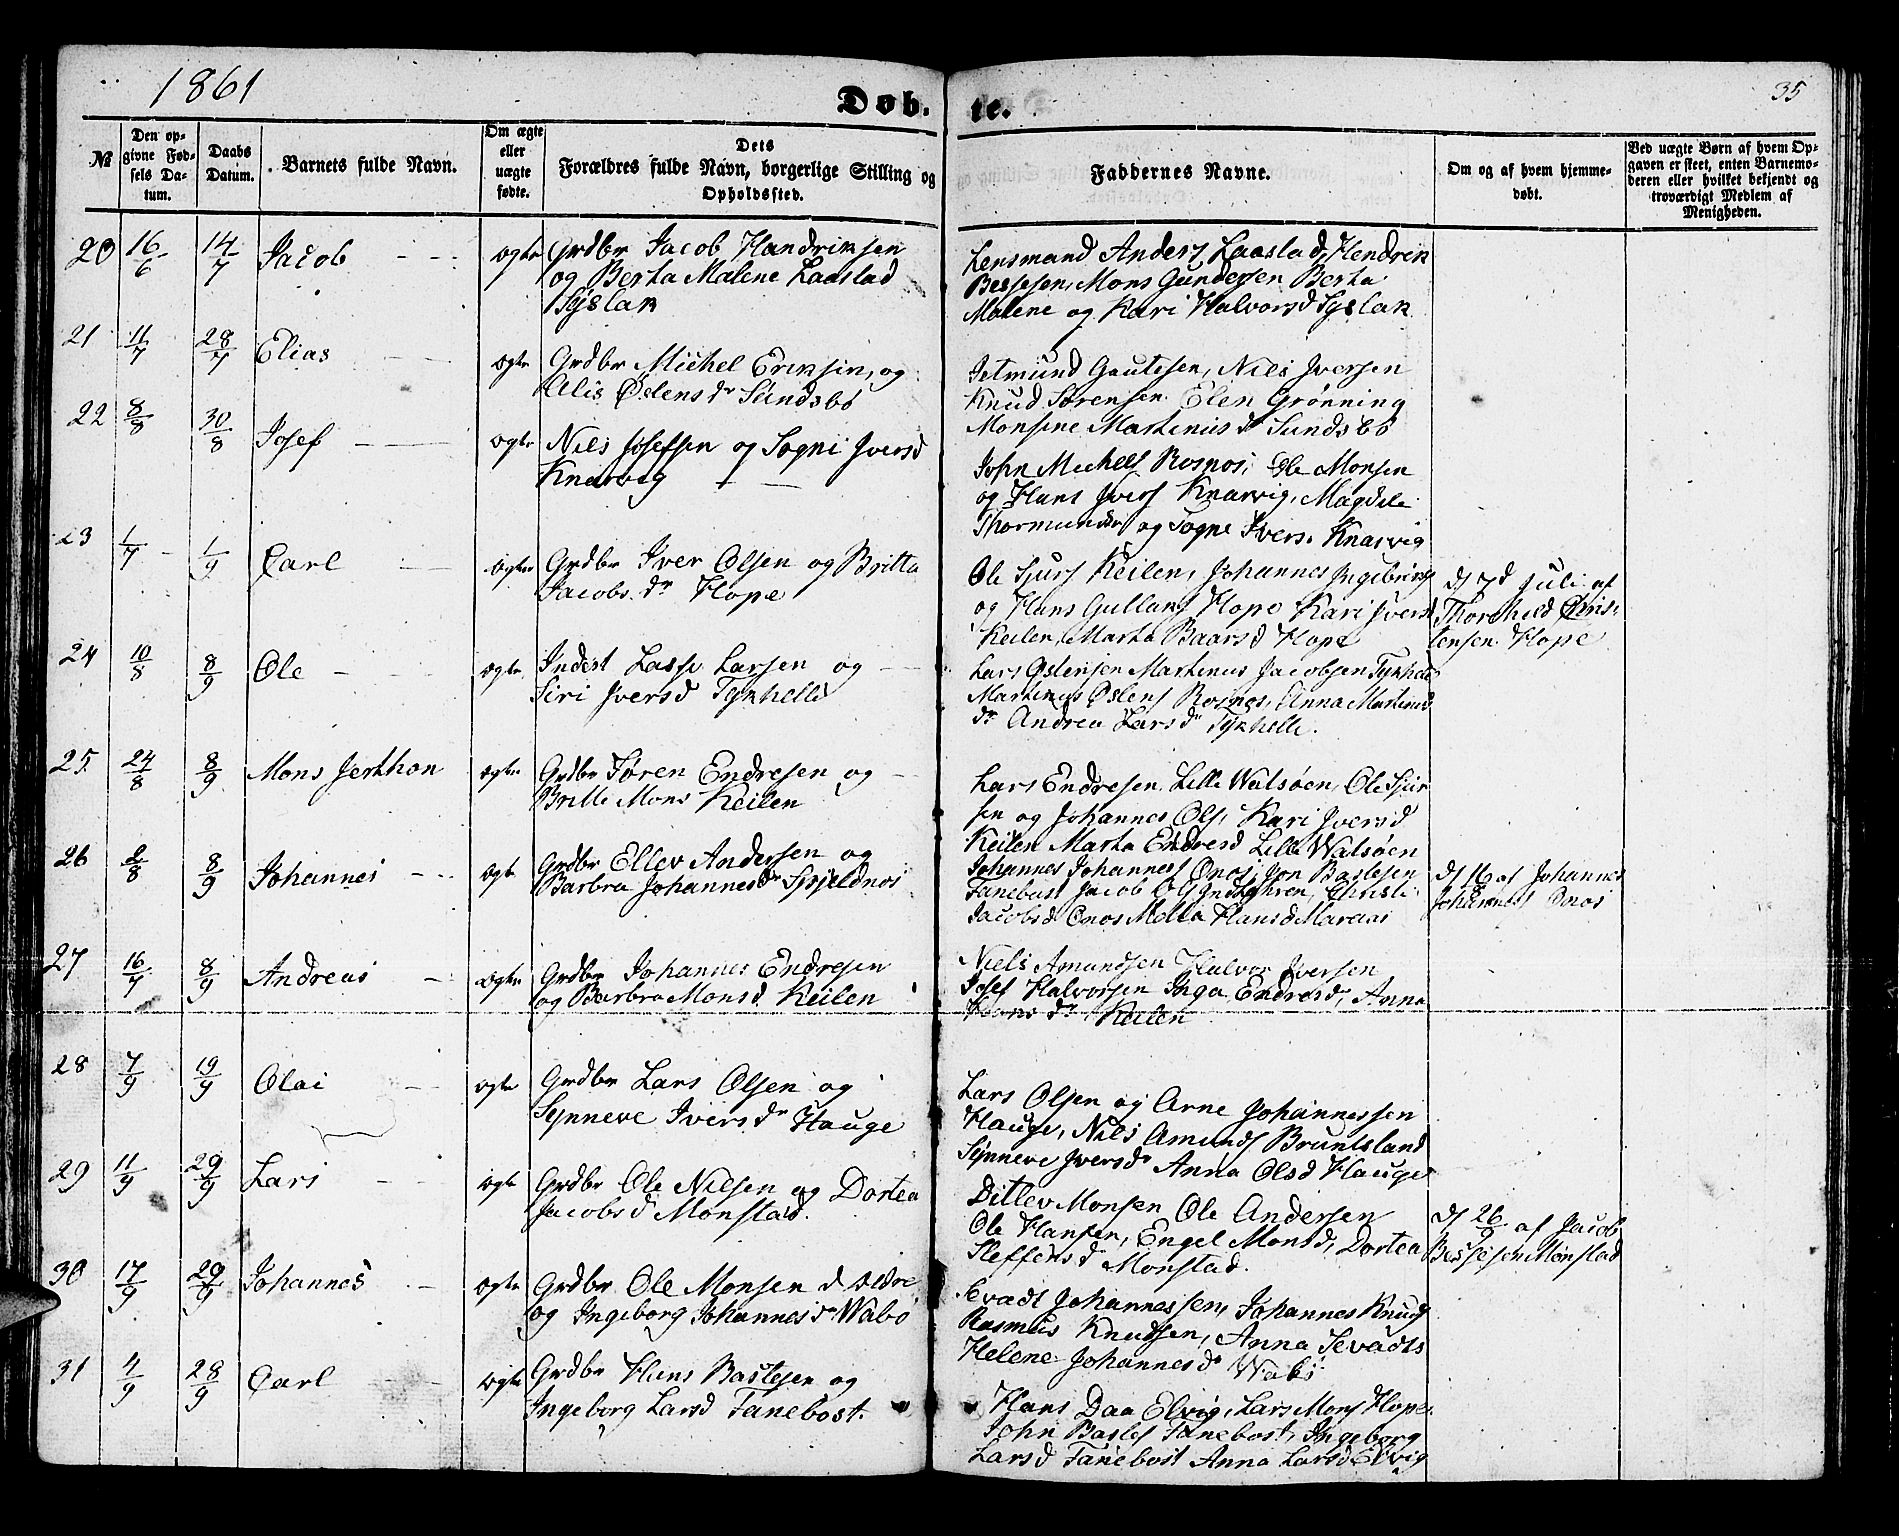 1861
Døb.
te.
35
№
Den op-
givne Fød-
sels Da-
tum.
Daabs
Datum.
Barnets fulde Navn.
Om ægte
eller
uægte
fødte.
Dets
Forældres fulde Navn, borgerlige Stilling og
Opholdssted.
Faddernes Navne.
Om og af hvem hjemme-
døbt.
Ved uægte Børn af hvem Op-
gaven er skeet, enten Barnemo-
deren eller hvilket bekjendt og
troværdigt Medlem af
Menigheden.
20 16/6 14/7 Jacob ægte Grdbr Jacob Handriksen
og Berta Malene Laastad
Syslak
Lensmand Anders Laastad, Hendrik
Bessesen, Mons Gundersen Berta
Malene og Kari Halvorsd Syslak
21 11/7 28/7 Elias ægte Grdbr Michel Eriksen, og
Østensdr Sundsbø
Jetmund Gautesen, Nils Iversen
Knud Sørensen Elen Grønning
Monsine Martinusd Sundsbø
22 8/8 30/8 Josef ægte Nils Josefsen og Sogni Iversd
Knarvig
John Michels Rosnos, Ole Monsen
og Hans Ivers Knarvig, Magdele
og Sogne Ivers. Knarvig
23 1/7 1/9 Carl ægte Grdbr Iver Olsen og Britta
Jacobs.dr Hope
Ole Sjurs Keilen, Johannes
og Hans Gullaks Hope Kari Iversd
Keilen, Marta Baarsd Hope
d 7d Juli af
Thorchild Chris-
tensen Hope
24 10/8 8/9 Ole ægte Inderst Lasse Larsen og
Siri Iversd Tynhelle
Lars Østensen Martinus Jacobsen
Martinus Østens Rosnos, Anna Martinus
dr Andrea Larsdr Tynhelle.
25 24/8 8/9 Mons Jerthon ægte Grdbr Søren Endresen og
Britte Mons Keilen
Lars Endresen Lille Walsøen, Ole Sjur
sen og Johannes Ols, Kari Iversd
Keilen Marta Endresd Lille Walsøen
26 2/8 8/9 Johannes ægte Grdbr Ellev Andersen og
Barbra Johannesdr
Johannes Johannes Onos, Jon Bastesen
Tanebust Jacob Ols Christi
Jacobsd Onos Hansd
d 16/8 af Johannes
Johannes Onos
27 16/7 8/9 Andreas ægte Grdbr Johannes Endresen
og Barbra Monsd Keilen
Niels Amundsen Halvor Iversen
Josef Halvorsen Inga Endresd, Anna
Hans dr Keilen
28 7/9 19/9 Olai ægte Grdbr Lars Olsen og
Synneve Iversdr Hauge
Lars Olsen og Arne Johannessen
Hauge, Nils Amunds Bruntsland
Synneve Iversdr Anna Olsd Hauge
29 11/9 29/9 Lars ægte Grdbr Ole Nilsen og Dortea
Jacobsd Monstad.
Ditlev Monsen Ole Andersen
Ole Hansen, Engel Monsd, Dortea
Steffensd Monstad.
d 26/9 af Jacob
Bessesen Monstad
30 17/9 29/9 Johannes ægte Grdbr Ole Monsen d ældre
og Ingeborg Johannesdr Wabø
Sevadt Johannessen, Johannes Knud
Rasmus Knudsen, Anna Sevadts
Helene Johannesdr Wabø
31 4/9 28/9 Carl ægte Grdbr Hans Bastesen og
Ingeborg Larsd Tanebost.
Hans Daa Elvig, Lars Mons Hope
John Bastes Tanebost, Ingeborg
Larsd Tanebost Anna Larsd Elvig